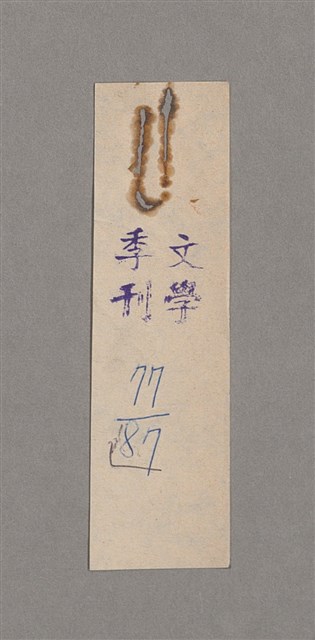 文學
季刊
77
87